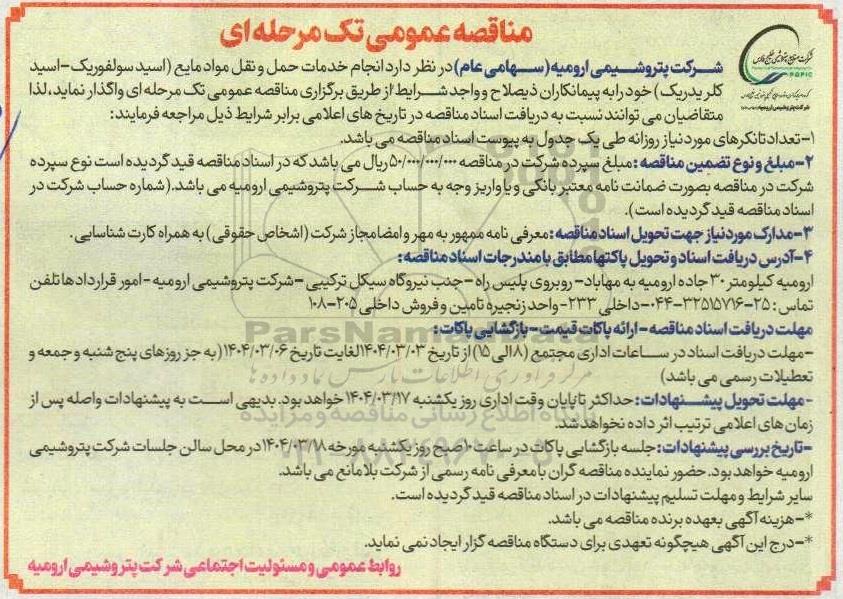 مناقصه عمومی تک مرحله ای
شرکت صنایع پتروشیمی خلیج فارس
PGPIC
شرکت پتروشیمی ارومیه
شرکت پتروشیمی ارومیه (سهامی عام) در نظر دارد انجام خدمات حمل و نقل مواد مایع (اسید سولفوریک-اسید
کلریدریک) خود را به پیمانکاران ذیصلاح و واجد شرایط از طریق برگزاری مناقصه عمومی تک مرحله ای واگذار نماید، لذا
متقاضیان می توانند نسبت به دریافت اسناد مناقصه در تاریخ های اعلامی برابر شرایط ذیل مراجعه فرمایند:
۱-تعداد تانکرهای مورد نیاز روزانه طی یک جدول به پیوست اسناد مناقصه می باشد.
۲-مبلغ و نوع تضمین مناقصه: مبلغ سپرده شرکت در مناقصه ۵۰/۰۰۰/۰۰۰/۰۰۰ ریال می باشد که در اسناد مناقصه قید گردیده است نوع سپرده
شرکت در مناقصه بصورت ضمانت نامه معتبر بانکی و یا واریز وجه به حساب شرکت پتروشیمی ارومیه می باشد. (شماره حساب شرکت در
اسناد مناقصه قید گردیده است).
۳-مدارک مورد نیاز جهت تحویل اسناد مناقصه: معرفی نامه ممهور به مهر و امضا مجاز شرکت (اشخاص حقوقی) به همراه کارت شناسایی.
۴-آدرس دریافت اسناد و تحویل پاکتها مطابق با مندرجات اسناد مناقصه:
ارومیه کیلومتر ۳۰ جاده ارومیه به مهاباد- روبروی پلیس راه - جنب نیروگاه سیکل ترکیبی -شرکت پتروشیمی ارومیه - امور قراردادها تلفن
تماس: ۲۵-۳۲۵۱۵۷۱۶-۰۴۴-داخلی ۲۳۳- واحد زنجیره تامین و فروش داخلی ۲۰۵-۱۰۸
مهلت دریافت اسناد مناقصه - ارائه پاکات قیمت - بازگشایی پاکات:
-مهلت دریافت اسناد در ساعات اداری مجتمع (۸ الی ۱۵) از تاریخ ۱۴۰۴/۰۳/۰۳ لغایت تاریخ ۱۴۰۴/۰۳/۰۶ (به جز روزهای پنج شنبه و جمعه و
تعطیلات رسمی می باشد)
- مهلت تحویل پیشنهادات: حداکثر تا پایان وقت اداری روز یکشنبه ۱۴۰۴/۰۳/۱۷ خواهد بود. بدیهی است به پیشنهادات واصله پس از
زمان های اعلامی ترتیب اثر داده نخواهد شد.
-تاریخ بررسی پیشنهادات: جلسه بازگشایی پاکات در ساعت ۱۰ صبح روز یکشنبه مورخه ۱۴۰۴/۰۳/۱۸ در محل سالن جلسات شرکت پتروشیمی
ارومیه خواهد بود. حضور نماینده مناقصه گران با معرفی نامه رسمی از شرکت بلامانع می باشد.
سایر شرایط و مهلت تسلیم پیشنهادات در اسناد مناقصه قید گردیده است.
*-هزینه آگهی بعهده برنده مناقصه می باشد.
*-درج این آگهی هیچگونه تعهدی برای دستگاه مناقصه گزار ایجاد نمی نماید.
روابط عمومی و مسئولیت اجتماعی شرکت پتروشیمی ارومیه
ParsNamadData
مرکز فرآوری اطلاعات پارس نماد داده ها
پایگاه اطلاع رسانی مناقصه و مزایده